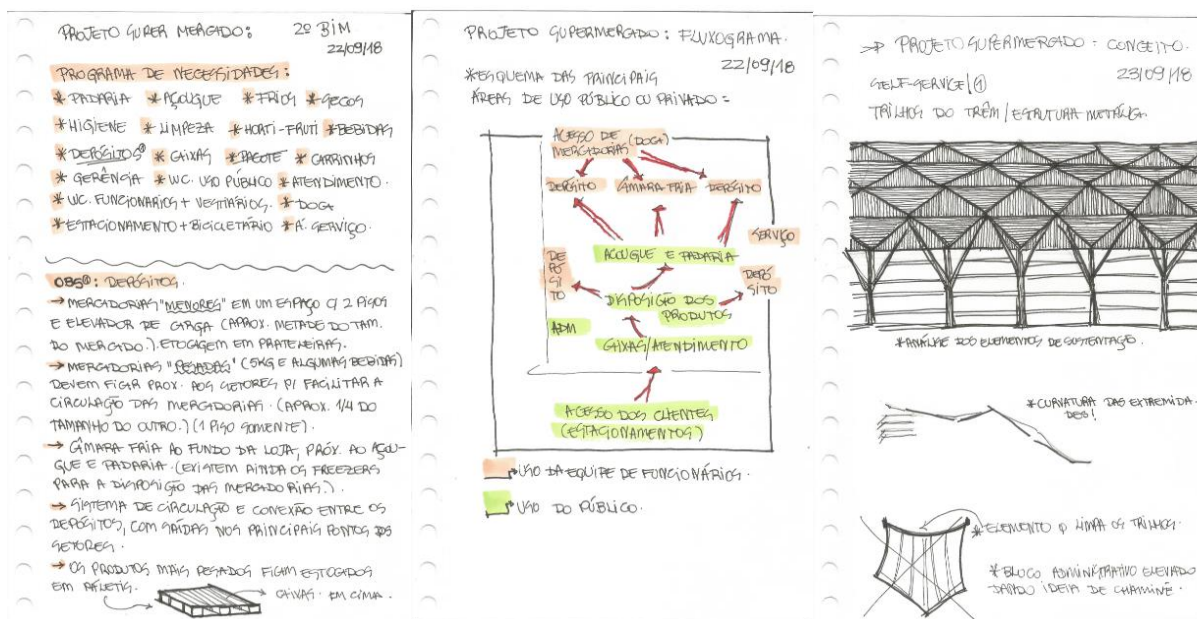 PROJETO SUPER MERCADO: 2º BIM
22/09/18
PROGRAMA DE NECESSIDADES:
* PADARIA * AÇOUGUE * FRIOS * SECOS
* HIGIENE * LIMPEZA * HORTI-FRUTI * BEBIDAS
* DEPÓSITOS * CAIXAS * PACOTE * CARRINHOS
* GERÊNCIA * WC. USO PÚBLICO * ATENDIMENTO.
* WC. FUNCIONARIOS + VESTIÁRIOS. * DOCA
* ESTACIONAMENTO + BICICLETÁRIO * A. SERVIÇO.
OBS: DEPÓSITOS.
→ MERCADORIAS "MENORES" EM UM ESPAÇO C/ 2 PISOS
E ELEVADOR DE CARGA (APROX. METADE DO TAM.
DO MERCADO.). ESTOCAGEM EM PRATELEIRAS.
→ MERCADORIAS "PESADAS" (5KG E ALGUMAS BEBIDAS)
DEVEM FICAR PROX. AOS SETORES P/ FACILITAR A
CIRCULAÇÃO DAS MERCADORIAS. (APROX. 1/4 DO
TAMANHO DO OUTRO.) (1 PISO SOMENTE).
→ CÂMARA FRIA AO FUNDO DA LOJA, PRÓX. AO AÇOU-
GUE E PADARIA. (EXISTEM AINDA OS FREEZERS
PARA A DISPOSIÇÃO DAS MERCADORIAS.).
→ SISTEMA DE CIRCULAÇÃO E CONEXÃO ENTRE OS
DEPÓSITOS, COM SAÍDAS NOS PRINCIPAIS PONTOS DOS
SETORES.
→ OS PRODUTOS MAIS PESADOS FICAM ESTOCADOS
EM PALETIS.
CAIXAS EM CIMA.
PROJETO SUPERMERCADO: FLUXOGRAMA.
22/09/18
* ESQUEMA DAS PRINCIPAIS
ÁREAS DE USO PÚBLICO OU PRIVADO:
ACESSO DE
MERCADORIAS (DOCA)
DEPÓSITO CÂMARA FRIA DEPÓSITO
SERVIÇO
AÇOUGUE E PADARIA
DE
PÓ
SI
TO
DEPÓ
SITO
DISPOSIÇÃO DOS
PRODUTOS
ADM
CAIXAS/ATENDIMENTO
ACESSO DOS CLIENTES
(ESTACIONAMENTOS)
USO DA EQUIPE DE FUNCIONÁRIOS.
USO DO PÚBLICO.
→ PROJETO SUPERMERCADO: CONCEITO.
23/09/18
SELF-SERVICE/
TRILHOS DO TRÊM / ESTRUTURA METÁLICA
* ANÁLISE DOS ELEMENTOS DE SUSTENTAÇÃO.
* CURVATURA DAS EXTREMIDA-
DES!
* ELEMENTO Q LIMPA OS TRILHOS.
* BLOCO ADMINISTRATIVO ELEVADO
DANDO IDEIA DE CHAMINÉ.